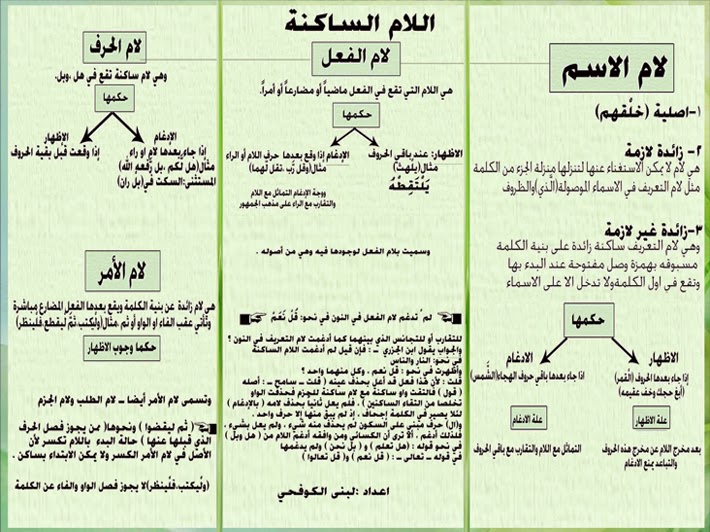 اللام الساكنة
لام الاسم
١-اصلية (خلُقهم)
٢- زائدة لازمة
هي لام لا يمكن الاستغناء عنها لتنزلها منزلة الجزء من الكلمة
مثل لام التعريف في الاسماء الموصولة(الذي)والظروف
٣-زائدة غير لازمة
وهي لام التعريف ساكنة زائدة على بنية الكلمة
مسبوقه بهمزة وصل مفتوحة عند البدء بها
وتقع في اول الكلمةولا تدخل الا على الاسماء
حكمها
الاظهار
إذا جاء بعدها الحروف (القمر)
(أبغ حجك وخف عقيمه)
علة الاظهار
بعد مخرج اللام عن مخرج هذه الحروف
والتباعد يمنع الادغام
الادغام
اذا جاء بعدها باقي حروف الهجاء(الشَّمس)
علة الادغام
التماثل مع اللام والتقارب مع باقي الحروف
لام الفعل
هي اللام التي تقع في الفعل ماضياً أو مضارعاً أو أمراً.
حكمها
الاظهار: عند باقي الحروف
مثال(يلهث)
يَلْتَقِطْهُ
الإدغام إذا وقع بعدها حرف اللام أو الراء
مثال(وقل رّب ،نقل لهما)
ووجة الإدغام التماثل مع اللام
والتقارب مع الراء على مذهب الجمهور
وسميت بلام الفعل لوجودها فيه وهي من أصوله .
لمْ تدغم لام الفعل في النون في نحو: قُلْ نَعَمْ
للتقارب أو للتجانس الذي بينهما كما أدغمت لام التعريف في النون ؟
والجواب يقول ابن الجزري ـ : فإن قيل لم أدغمت اللام الساكنة
في نحو: النار والناس
وأظهرت في نحو : قل نعم . وكل منهما واحد ؟
قلت : لأن هذا فعل قد أعل بحذف عينه ( قلت ـ سامح ـ : أصله
( قول ) فالتقت واو ساكنة مع لام ساكنة للجزم فحذفت الواو
تخلصا من التقاء الساكنين ) . فلم يعل ثانياً بحذف لامه ( بالإدغام )
لئلا يصير في الكلمة إجحاف . إذ لم يبق منها إلا حرف واحد .
و(ال) حرف مبني على السكون لم يحذف منه شيء . ولم يعل بشيء .
فلذلك أدغم . ألا ترى أن الكسائي ومن وافقه أدغم اللام من ( هل وبل )
في نحو قوله : (هل تعلم ) و ( بل نحن ) ولم يدغمها
في قوله ـ تعالى ـ : ( قل نعم ) و( قل تعالوا )
اعداد :لبنى الكوفحي
لام الحرف
وهي لام ساكنة تقع في هل ،وبل.
حكمها
الإدغام
إذا جاء بعدها لام او راء
مثال(هل لكم ،بل رَّفعه اللَّه)
المستثنى:السكت في(بل ران)
الاظهار
إذا وقعت قبل بقية الحروف
لام الأمر
هي لام زائدة عن بنية الكلمة ويقع بعدها الفعل المضارع مباشرة
وتأتي عقب الفاء او الواو أو ثم .مثال(وليُكتب،ثمَّ ليقطع،فلْينظر)
حكما وجوب الاظهار
وتسمى لام الأمر أيضا ـ لام الطلب ولام الجزم
( ثم ليقضوا ) ونحوها( من يجوز فصل الحرف
الذي قبلها عنها ) حالة البدء باللام تكسر لأن
الأصل في لام الأمر الكسر ولا يمكن الابتداء بساكن .
(وليُكتب،فلْينظر)لا يجوز فصل الواو والفاء عن الكلمة